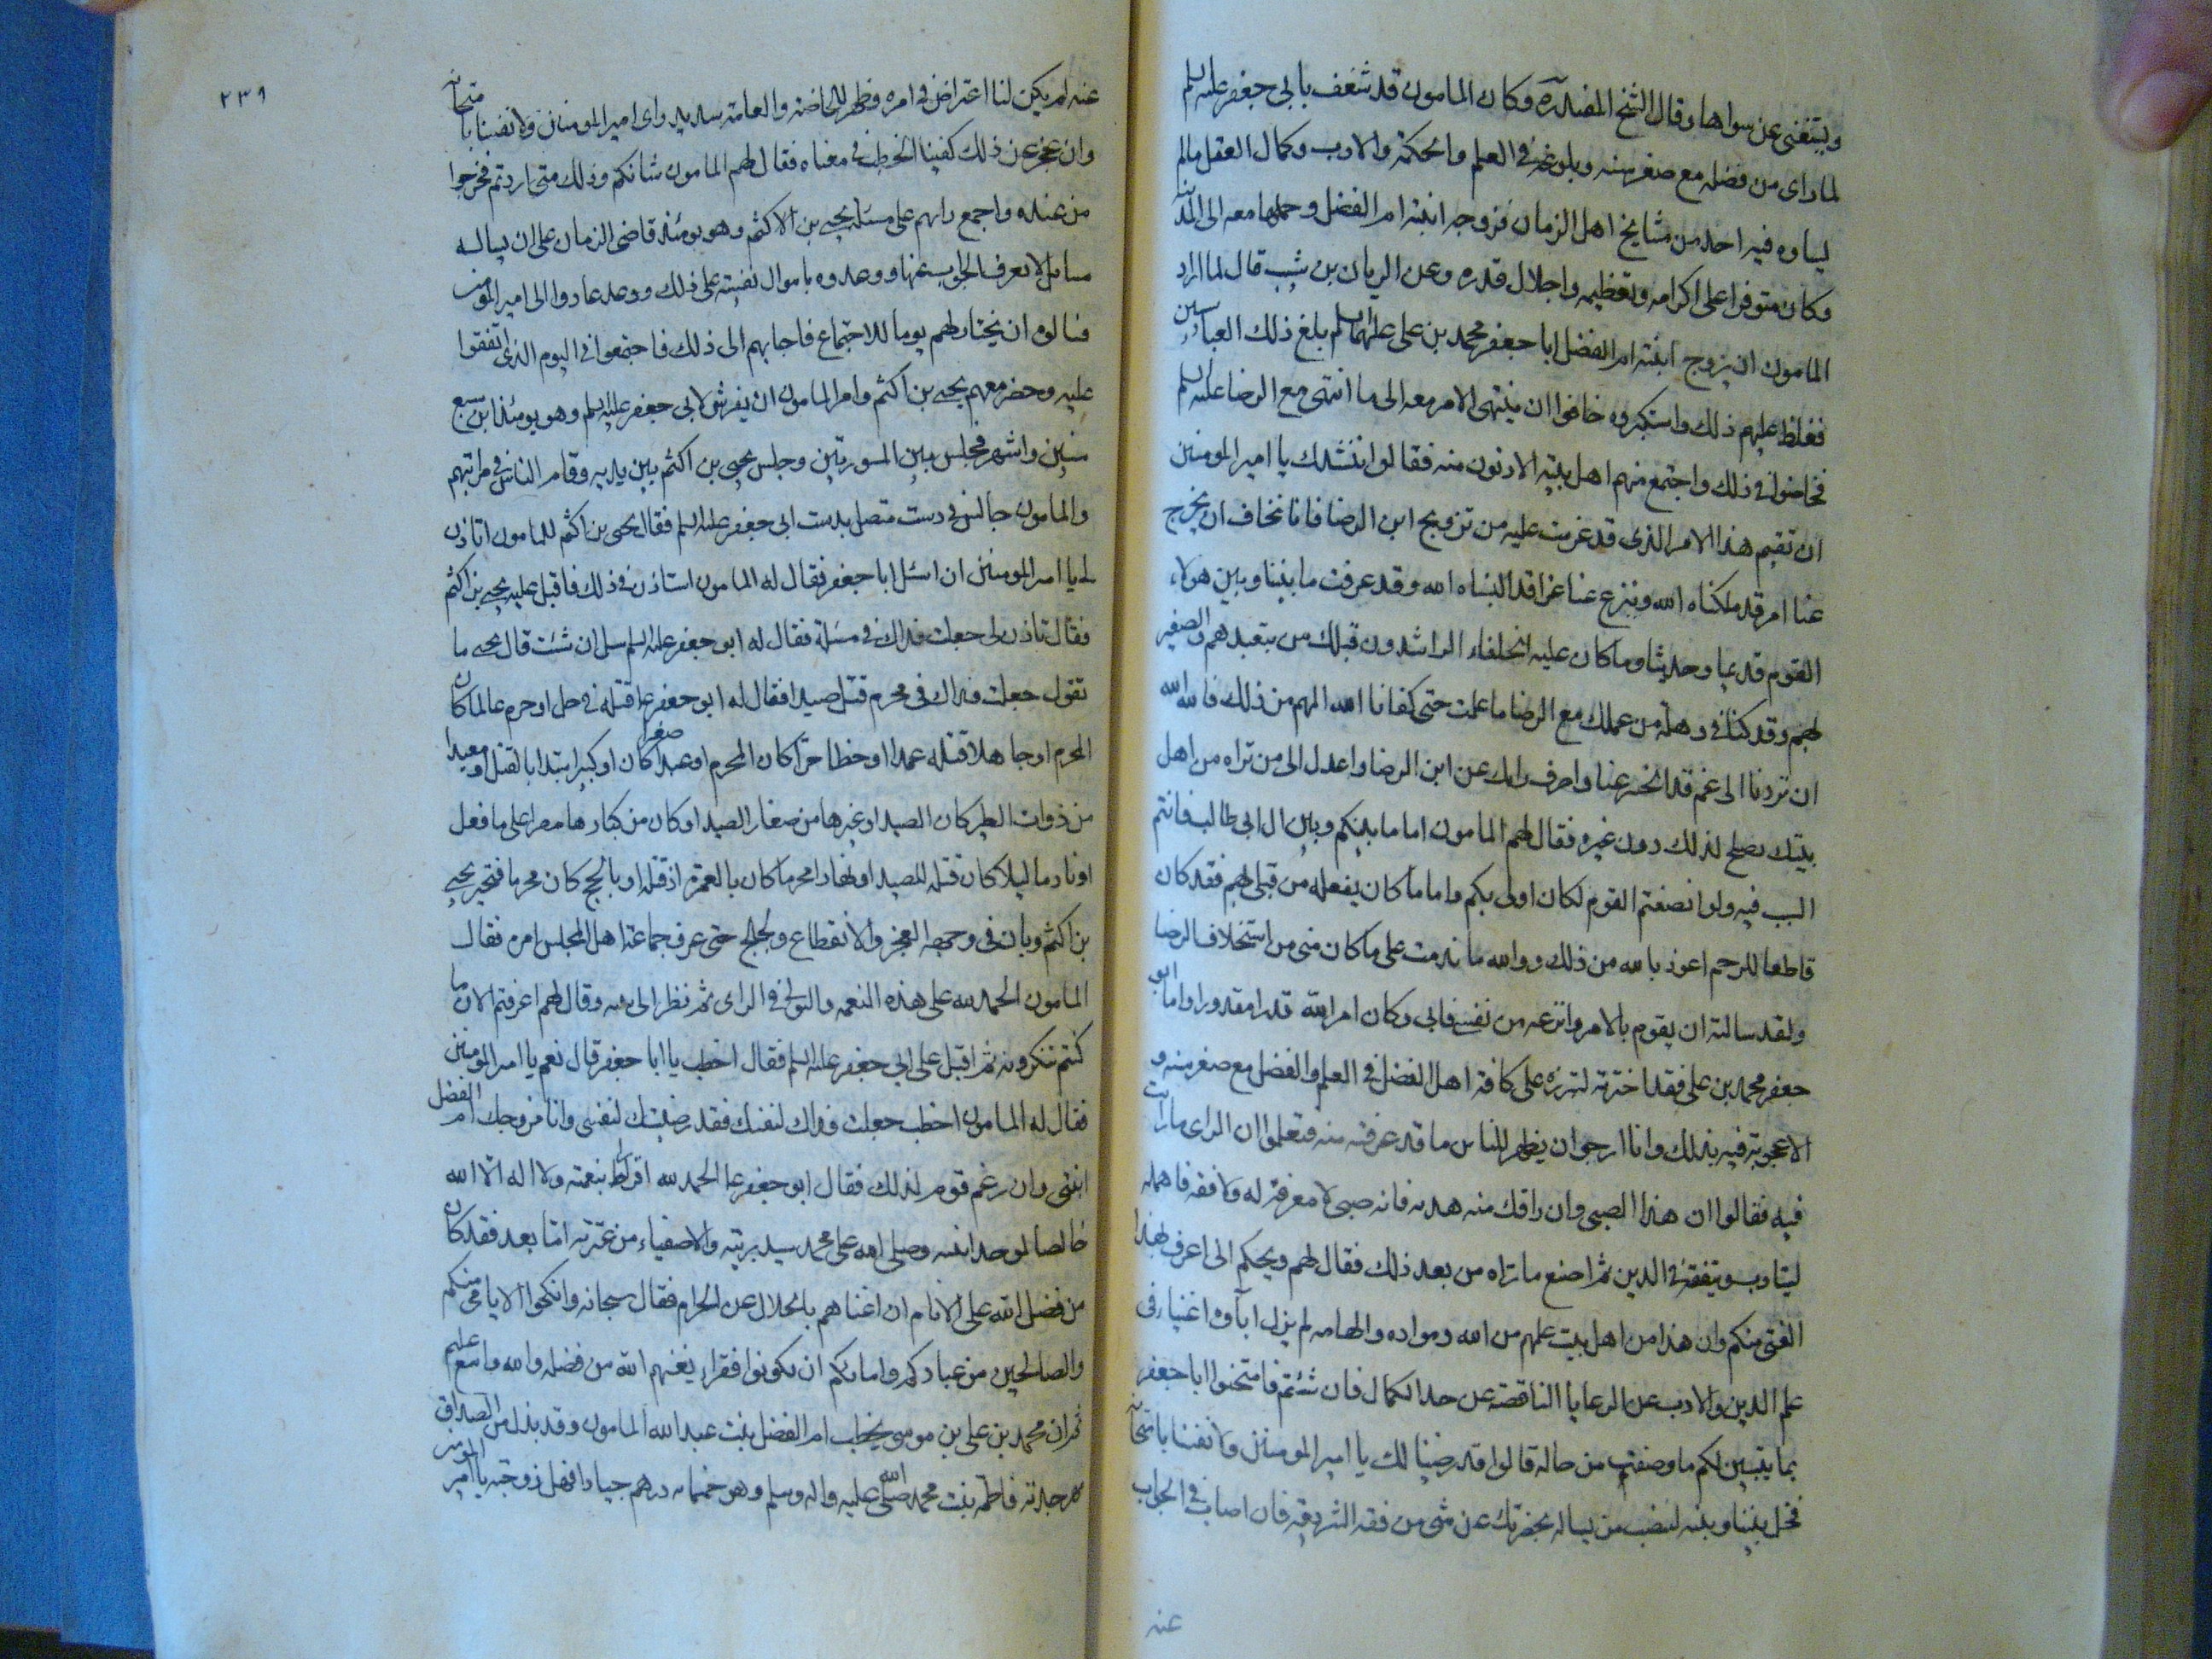 ويستغنى عن سواها وقال الشيخ المفيد ره وكان المامون قد شغف بابى جعفر عليه السلم
لما راى من فضله مع صغر سنه وبلوغه فى العلم والحكمة والادب وكمال العقل ما لم
يساوه فيه احد من مشايخ اهل الزمان فزوجه ابنته ام الفضل وحملها معه الى المدينه
وكان متوفرا على اكرامه وتعظيمه واجلال قدره وعن الريان بن شبيب قال لما اراد
المامون ان يزوج ابنته ام الفضل ابا جعفر محمد بن على عليهما السلم بلغ ذلك العباسيين
فغلظ عليهم ذلك واستكبروه خافوا ان ينتهى الامر معه الى ما انتهى مع الرضا عليه السلم
فخاضوا فى ذلك واجتمع منهم اهل بيته الادنون منه فقالوا ننشدك يا امير المومنين
ان تقيم هذا الامر الذى قد عزمت عليه من تزويج ابن الرضا فانا نخاف ان يخرج
عنا امر قد ملكناه الله وينزع عنا عزا قد البسناه الله وقد عرفت ما بيننا وبين هولاء
القوم قديما وحديثا وما كان عليه الخلفاء الراشدون قبلك من تبعيدهم والتصغير
لهم وقد كنا فى وهلة من عملك مع الرضا ما عملت حتى كفانا الله المهم من ذلك فالله الله
ان تردنا الى غم قد انحسر عنا واصرف رايك عن ابن الرضا واعدل الى من تراه من اهل
بيتك يصلح لذلك دون غيره فقال لهم المامون اما ما بينكم وبين ال ابى طالب فانتم
السبب فيه ولو انصفتم القوم لكان اولى بكم واما ما كان يفعله من قبلى لهم فقد كان
قاطعا للرحم اعوذ بالله من ذلك ووالله ما ندمت على ما كان منى من استخلاف الرضا
ولقد سالته ان يقوم بالامر وانزعه من نفسى فابى وكان امر الله قدرا مقدورا واما ابو
جعفر محمد بن على فقد اخترته لتبرزه على كافة اهل الفضل فى العلم والفضل مع صغر سنه و
الاعجوبة فيه بذلك وانا ارجو ان يظهر للناس ما قد عرفته منه فتعلموا ان الراى ما رايت
فيه فقالوا ان هذا الصبى وان راقك منه هديه فانه صبى لا معرفة له ولا فقه فامهله
ليتادب ويتفقه فى الدين ثم اصنع ما تراه من بعد ذلك فقال لهم ويحكم انى اعرف بهذا
الفتى منكم وان هذا من اهل بيت علمهم من الله ومواده والهامه لم يزل اباؤه اغنياء فى
علم الدين والادب عن الرعايا الناقصة عن حد الكمال فان شئتم فامتحنوا ابا جعفر
بما يتبين لكم ما وصفتم من حاله قالوا قد رضينا لك يا امير المومنين ولانفسنا بامتحانه
فخل بيننا وبينه لننصب من يساله بحضرتك عن شى من فقه الشريعة فان اصاب فى الجواب
عنه
٢٣٩
عنه لم يكن لنا اعتراض فى امره وظهر للخاصة والعامة سديد راى امير المومنين ولانفسنا بامتحانه
وان عجز عن ذلك كفينا الخطب فى معناه فقال لهم المامون شانكم وذلك متى اردتم فخرجوا
من عنده واجمع رايهم على مسئلة يحيى بن الاكثم وهو يومئذ قاضى الزمان على ان يساله
مسايل لا يعرف الجواب عنها ووعدوه باموال نفيسة على ذلك ووعد عادوا الى امير المومنين
فسالوه ان يختار لهم يوما للاجتماع فاجابهم الى ذلك فاجتمعوا فى اليوم الذى اتفقوا
عليه وحضر معهم يحيى بن اكثم وامر المامون ان يفرش لابى جعفر عليه السلم وهو يومئذ ابن سبع
سنين واشهر فجلس بين المسورتين وجلس يحيى بن اكثم بين يديه وقام الناس فى مراتبهم
والمامون جالس فى دست متصل بدست ابى جعفر عليه السلم فقال يحيى بن اكثم للمامون اتاذن
لى يا امير المومنين ان اسئل ابا جعفر فقال له المامون استاذن فى ذلك فاقبل عليه يحيى بن اكثم
فقال تاذن لى جعلت فداك فى مسئلة فقال له ابو جعفر عليه السلم سل ان شئت قال يحيى ما
تقول جعلت فداك فى محرم قتل صيدا فقال له ابو جعفر ع قتله فى حل او حرم عالما كان
المحرم او جاهلا قتله عمدا او خطا حرا كان المحرم او عبدا صغيرا كان او كبيرا مبتدا بالقتل او معيدا
من ذوات الطير كان الصيد او غيرها من صغار الصيد او كان من كبارها مصرا على ما فعل
او نادما ليلا كان قتله للصيد او نهارا محرما كان بالعمرة اذ قتله او بالحج كان محرما فتحير يحيى
بن اكثم وبان فى وجهه العجز والانقطاع ولجلج حتى عرف جماعة اهل المجلس امره فقال
المامون الحمد لله على هذه النعمه والتوفيق فى الراى ثم نظر الى بيته وقال لهم اعرفتم الان ما
كنتم تنكرونه ثم اقبل على ابى جعفر عليه السلم فقال اخطب يا ابا جعفر قال نعم يا امير المومنين
فقال له المامون اخطب جعلت فداك لنفسك فقد رضيتك لنفسى وانا مزوجك ام الفضل
ابنتى وان رغم قوم لذلك فقال ابو جعفر ع الحمد لله اقرارا بنعمته ولا اله الا الله
خالصا لوحدانيته وصلى الله على محمد سيد بريته والاصفياء من عترته اما بعد فقد كان
من فضل الله على الانام ان اغناهم بالحلال عن الحرام فقال سبحانه وانكحوا الايامى منكم
والصالحين من عبادكم وامائكم ان يكونوا فقراء يغنهم الله من فضله والله واسع عليم
ثم ان محمد بن على بن موسى يخطب ام الفضل بنت عبد الله المامون وقد بذل من الصداق
مهر جدته فاطمة بنت محمد صلى الله عليه واله وسلم وهو خمسمائه درهم جيادا فهل زوجته يا امير المومنين